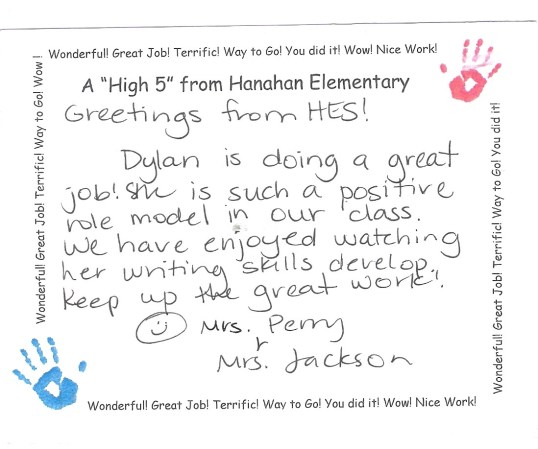 Wonderful! Great Job! Terrific! Way to Go! You did it! Wow! Nice Work!
A "High 5" from Hanahan Elementary
Greetings from HES!
Dylan is doing a great
job! She is such a positive
role model in our class.
We have enjoyed watching
her writing skills develop.
Keep up the great work!
Mrs. Perry
Mrs. Jackson
Wonderful! Great Job! Terrific! Way to Go! You did it! Wow! Nice Work!
Wonderful! Great Job! Terrific! Way to Go! Wow !
Wonderful! Great Job! Terrific! Way to Go! You did it!